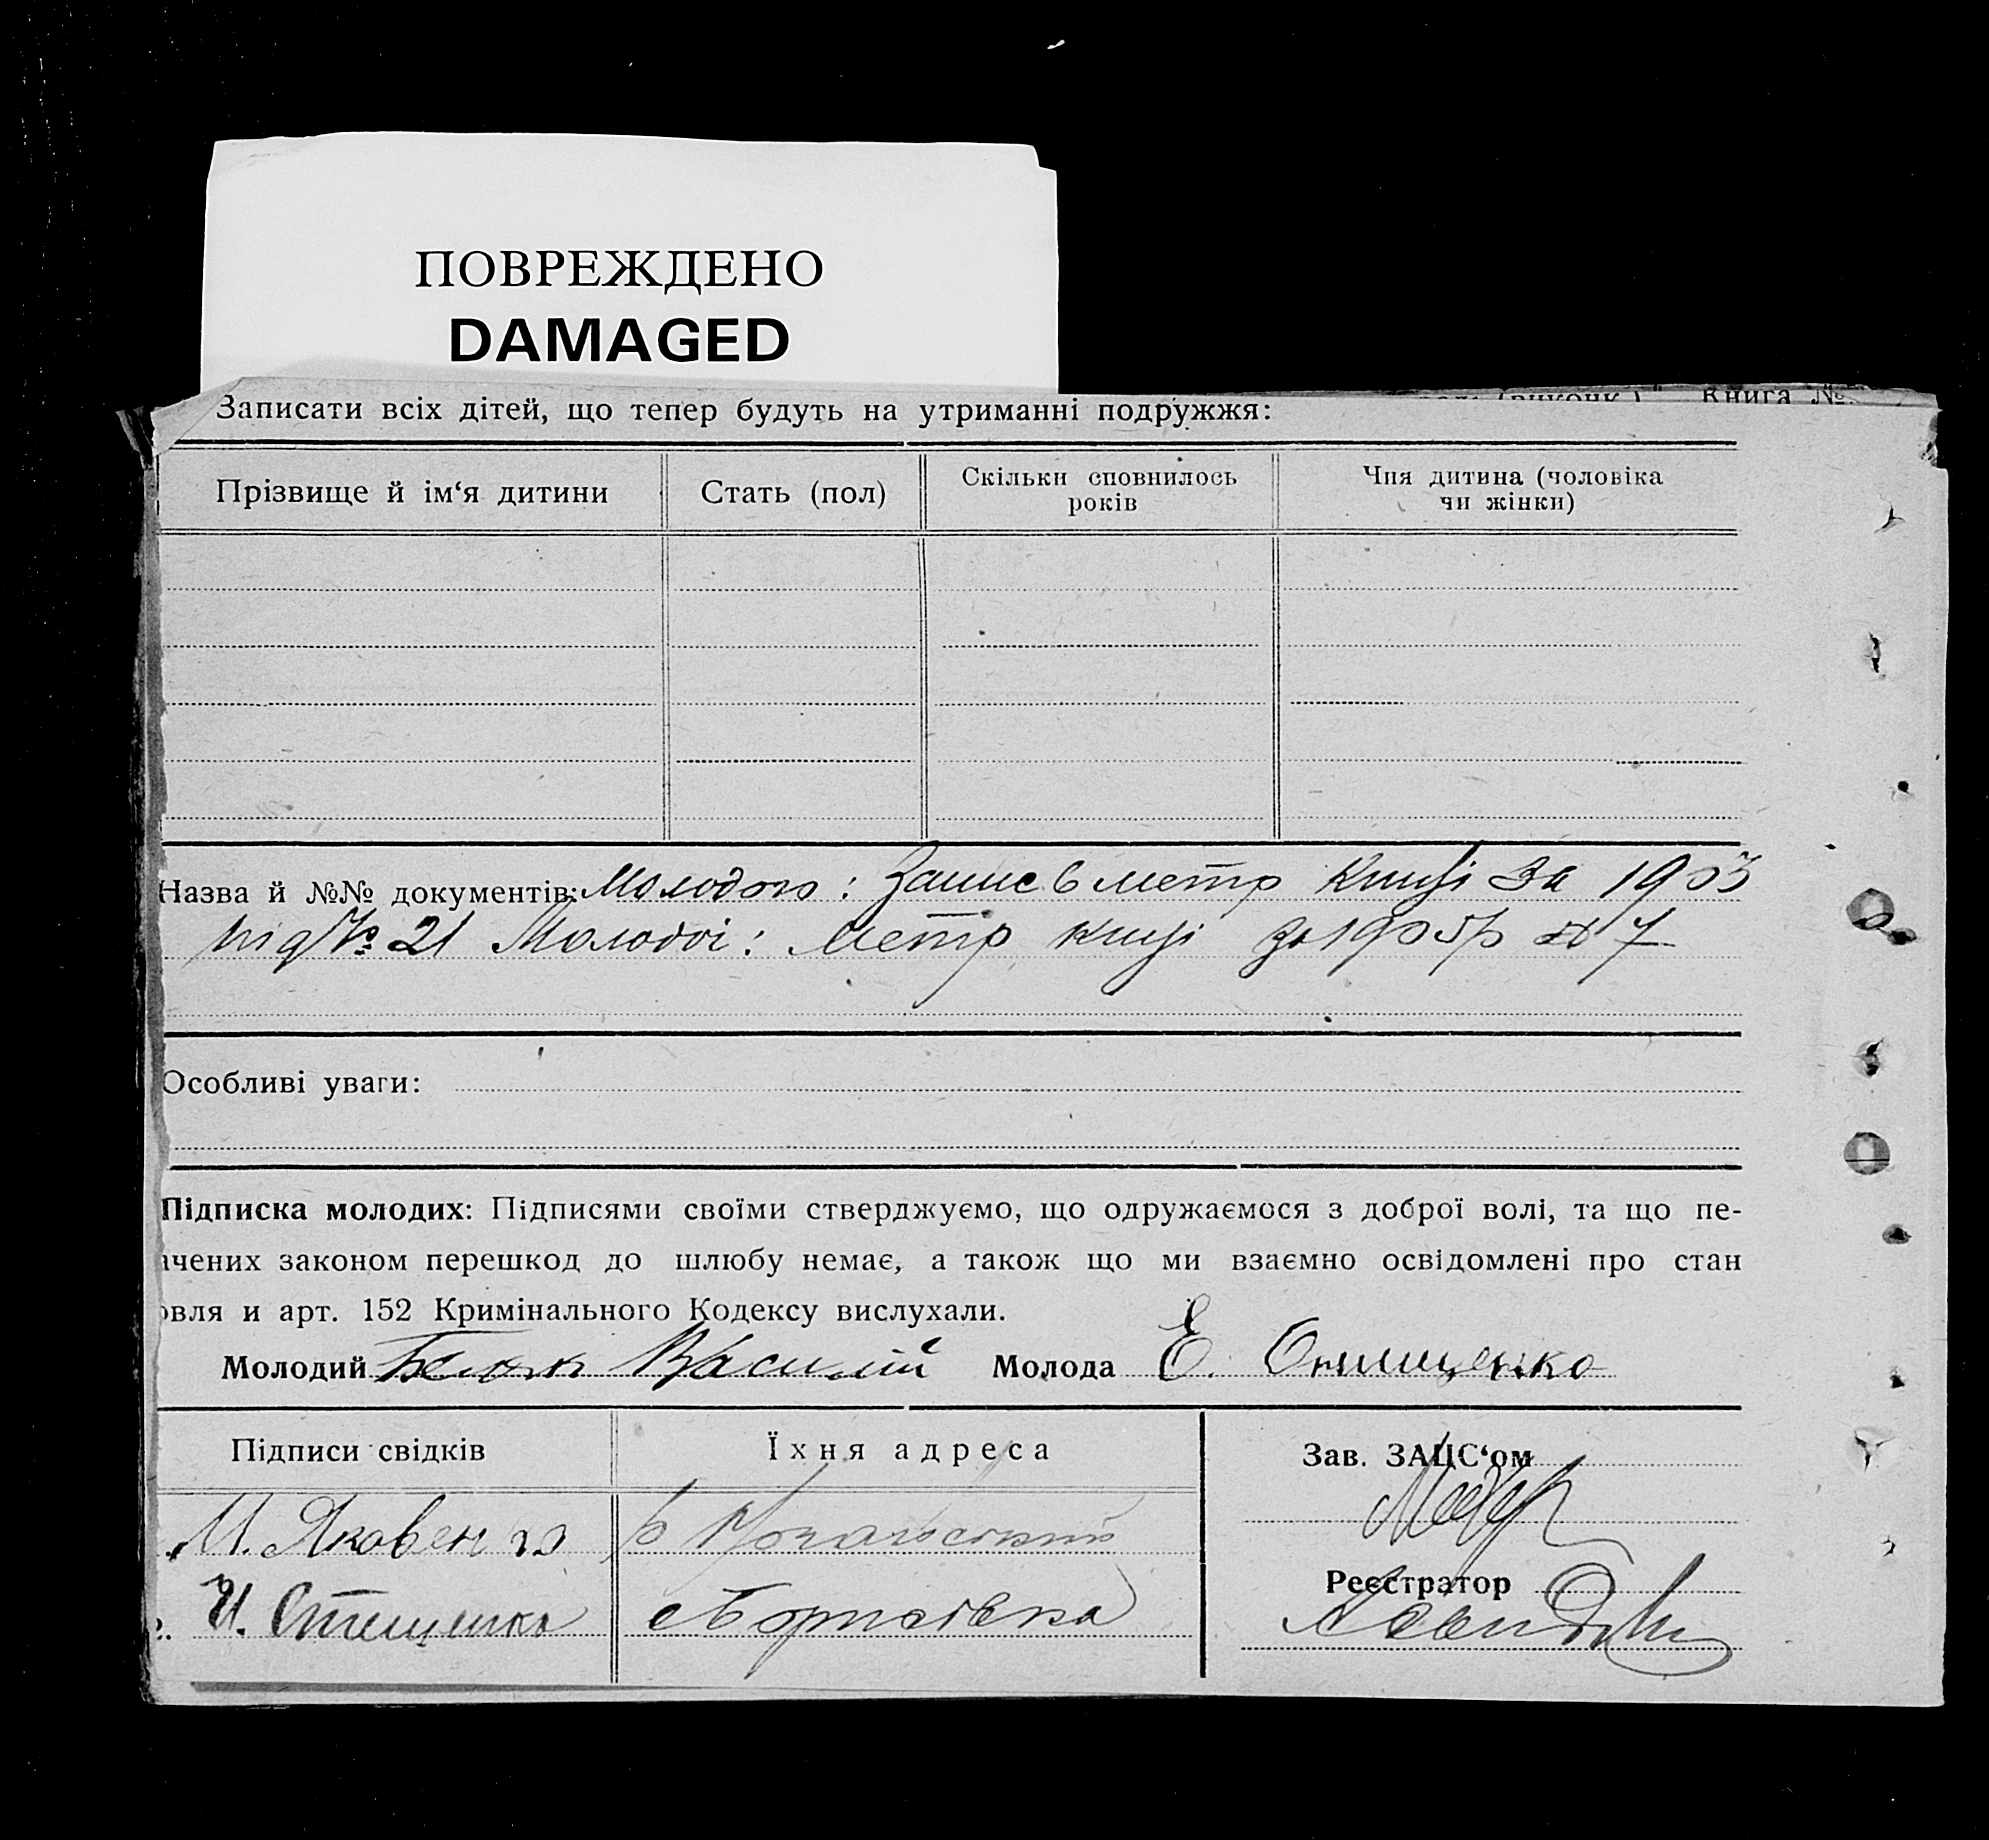 ПОВРЕЖДЕНО
DAMAGED
Книга №
Записати всіх дітей, що тепер будуть на утриманні подружжя:
Прізвище й ім‘я дитини
Стать (пол)
Скільки сповнилось
років
Чия дитина (чоловіка
чи жінки)
Назва й №№ документів: Молодого: Запис в метр книзі за 1903
під № 21 Молодої: метр книзі за 1905р № 7
Особливі уваги:
Підписка молодих: Підписями своїми стверджуємо, що одружаємося з доброї волі, та що пе-
ачених законом перешкод до шлюбу немає, а також що ми взаємно освідомлені про стан
овля и арт. 152 Кримінального Кодексу вислухали.
Молодий Василій Молода Є. Онищенко
Підписи свідків
Їхня адреса
Зав. ЗАЦС‘ом
М. Яковенко
Реєстратор
И. Стищенко